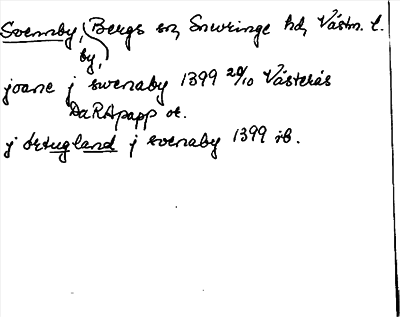 Svennby, Bergs sn, Snevringe hd, Västm. l.
by,
joane j swenaby 1399 20/10 Västerås
DaRApapp or.
j ørtugland j svenaby 1399 ib.